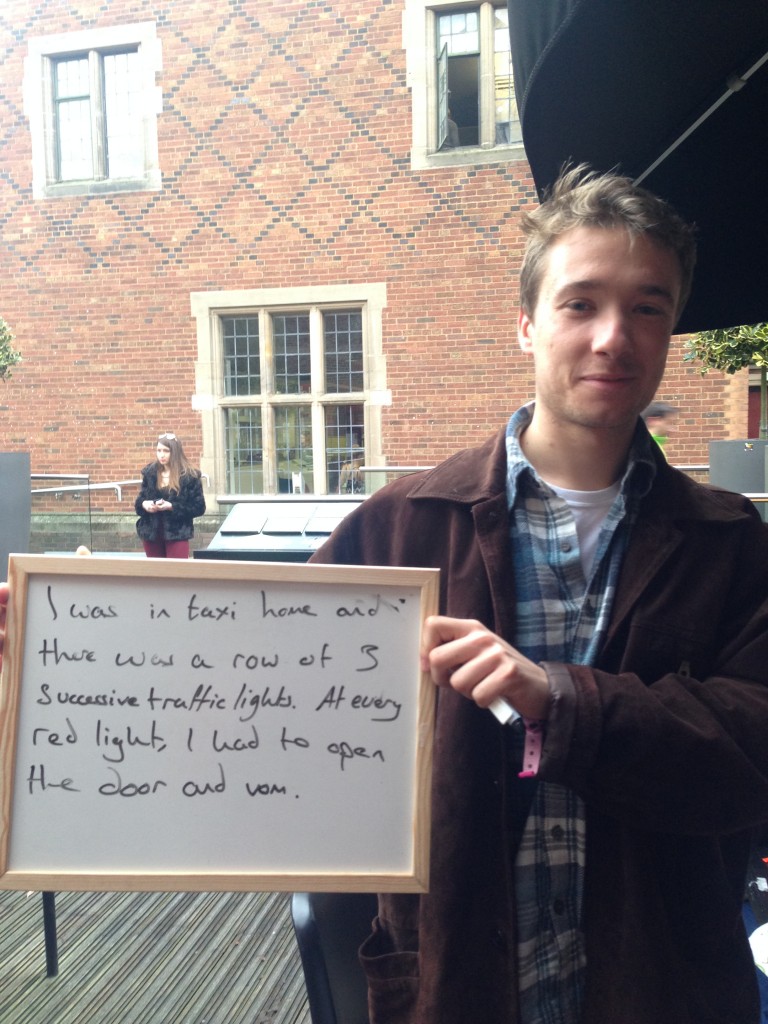 I was in taxi home and
there was a row of 3
Successive traffic lights. At every
red light, I had to open
the door and vom.